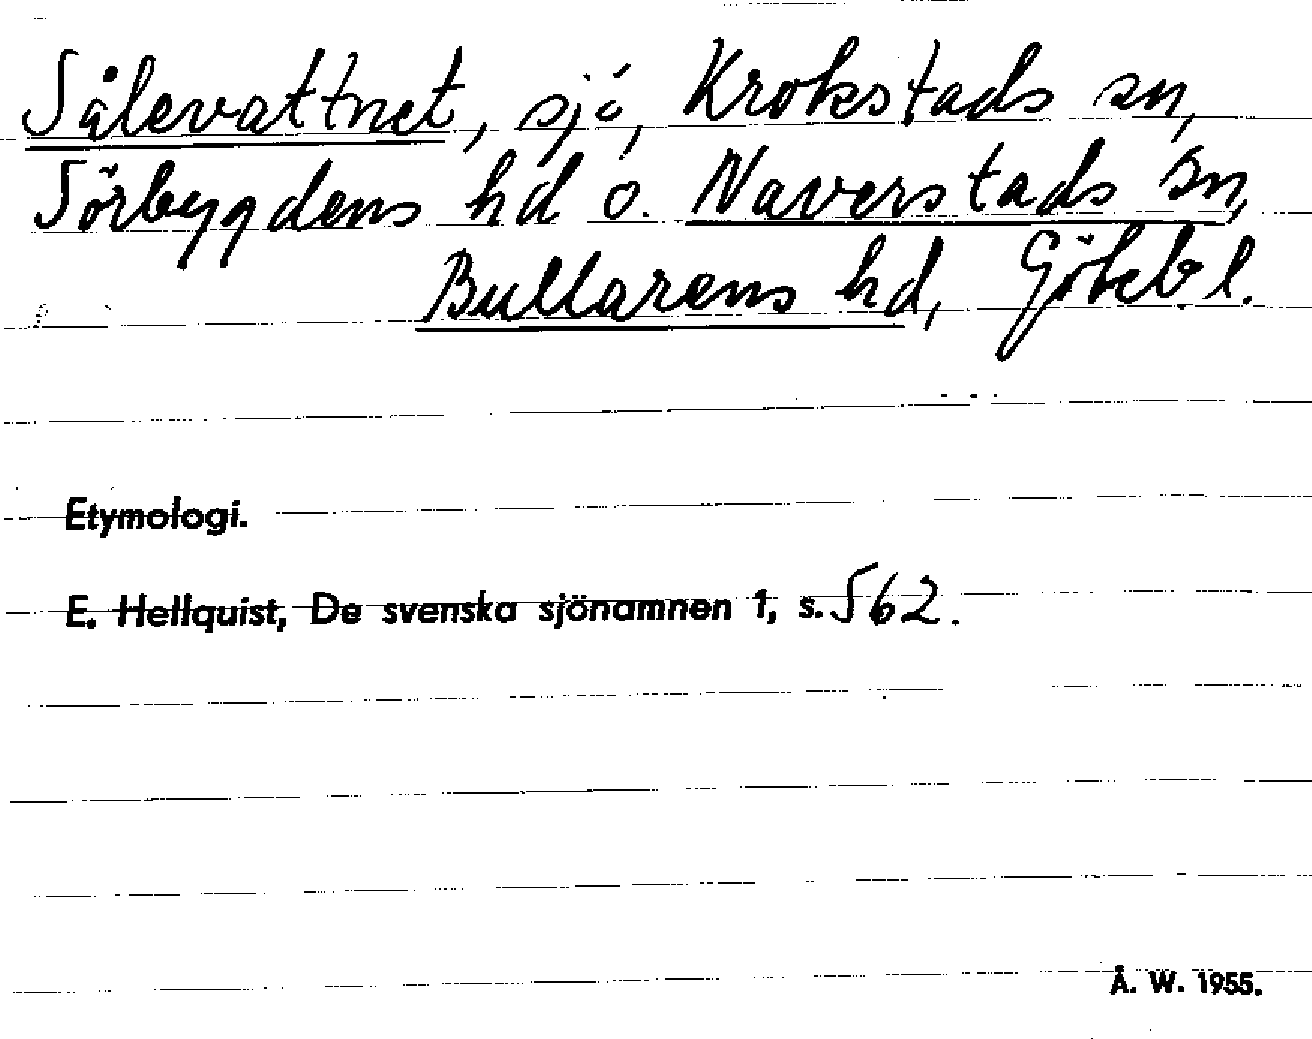 Sålevattnet, sjö, Krokstads sn,
Sörbygdens hd o. Naverstads sn,
Bullarens hd, Götebl.
Etymologi.
E. Hellquist, De svenska sjönamnen 1, s. 562.
Å. W. 1955.